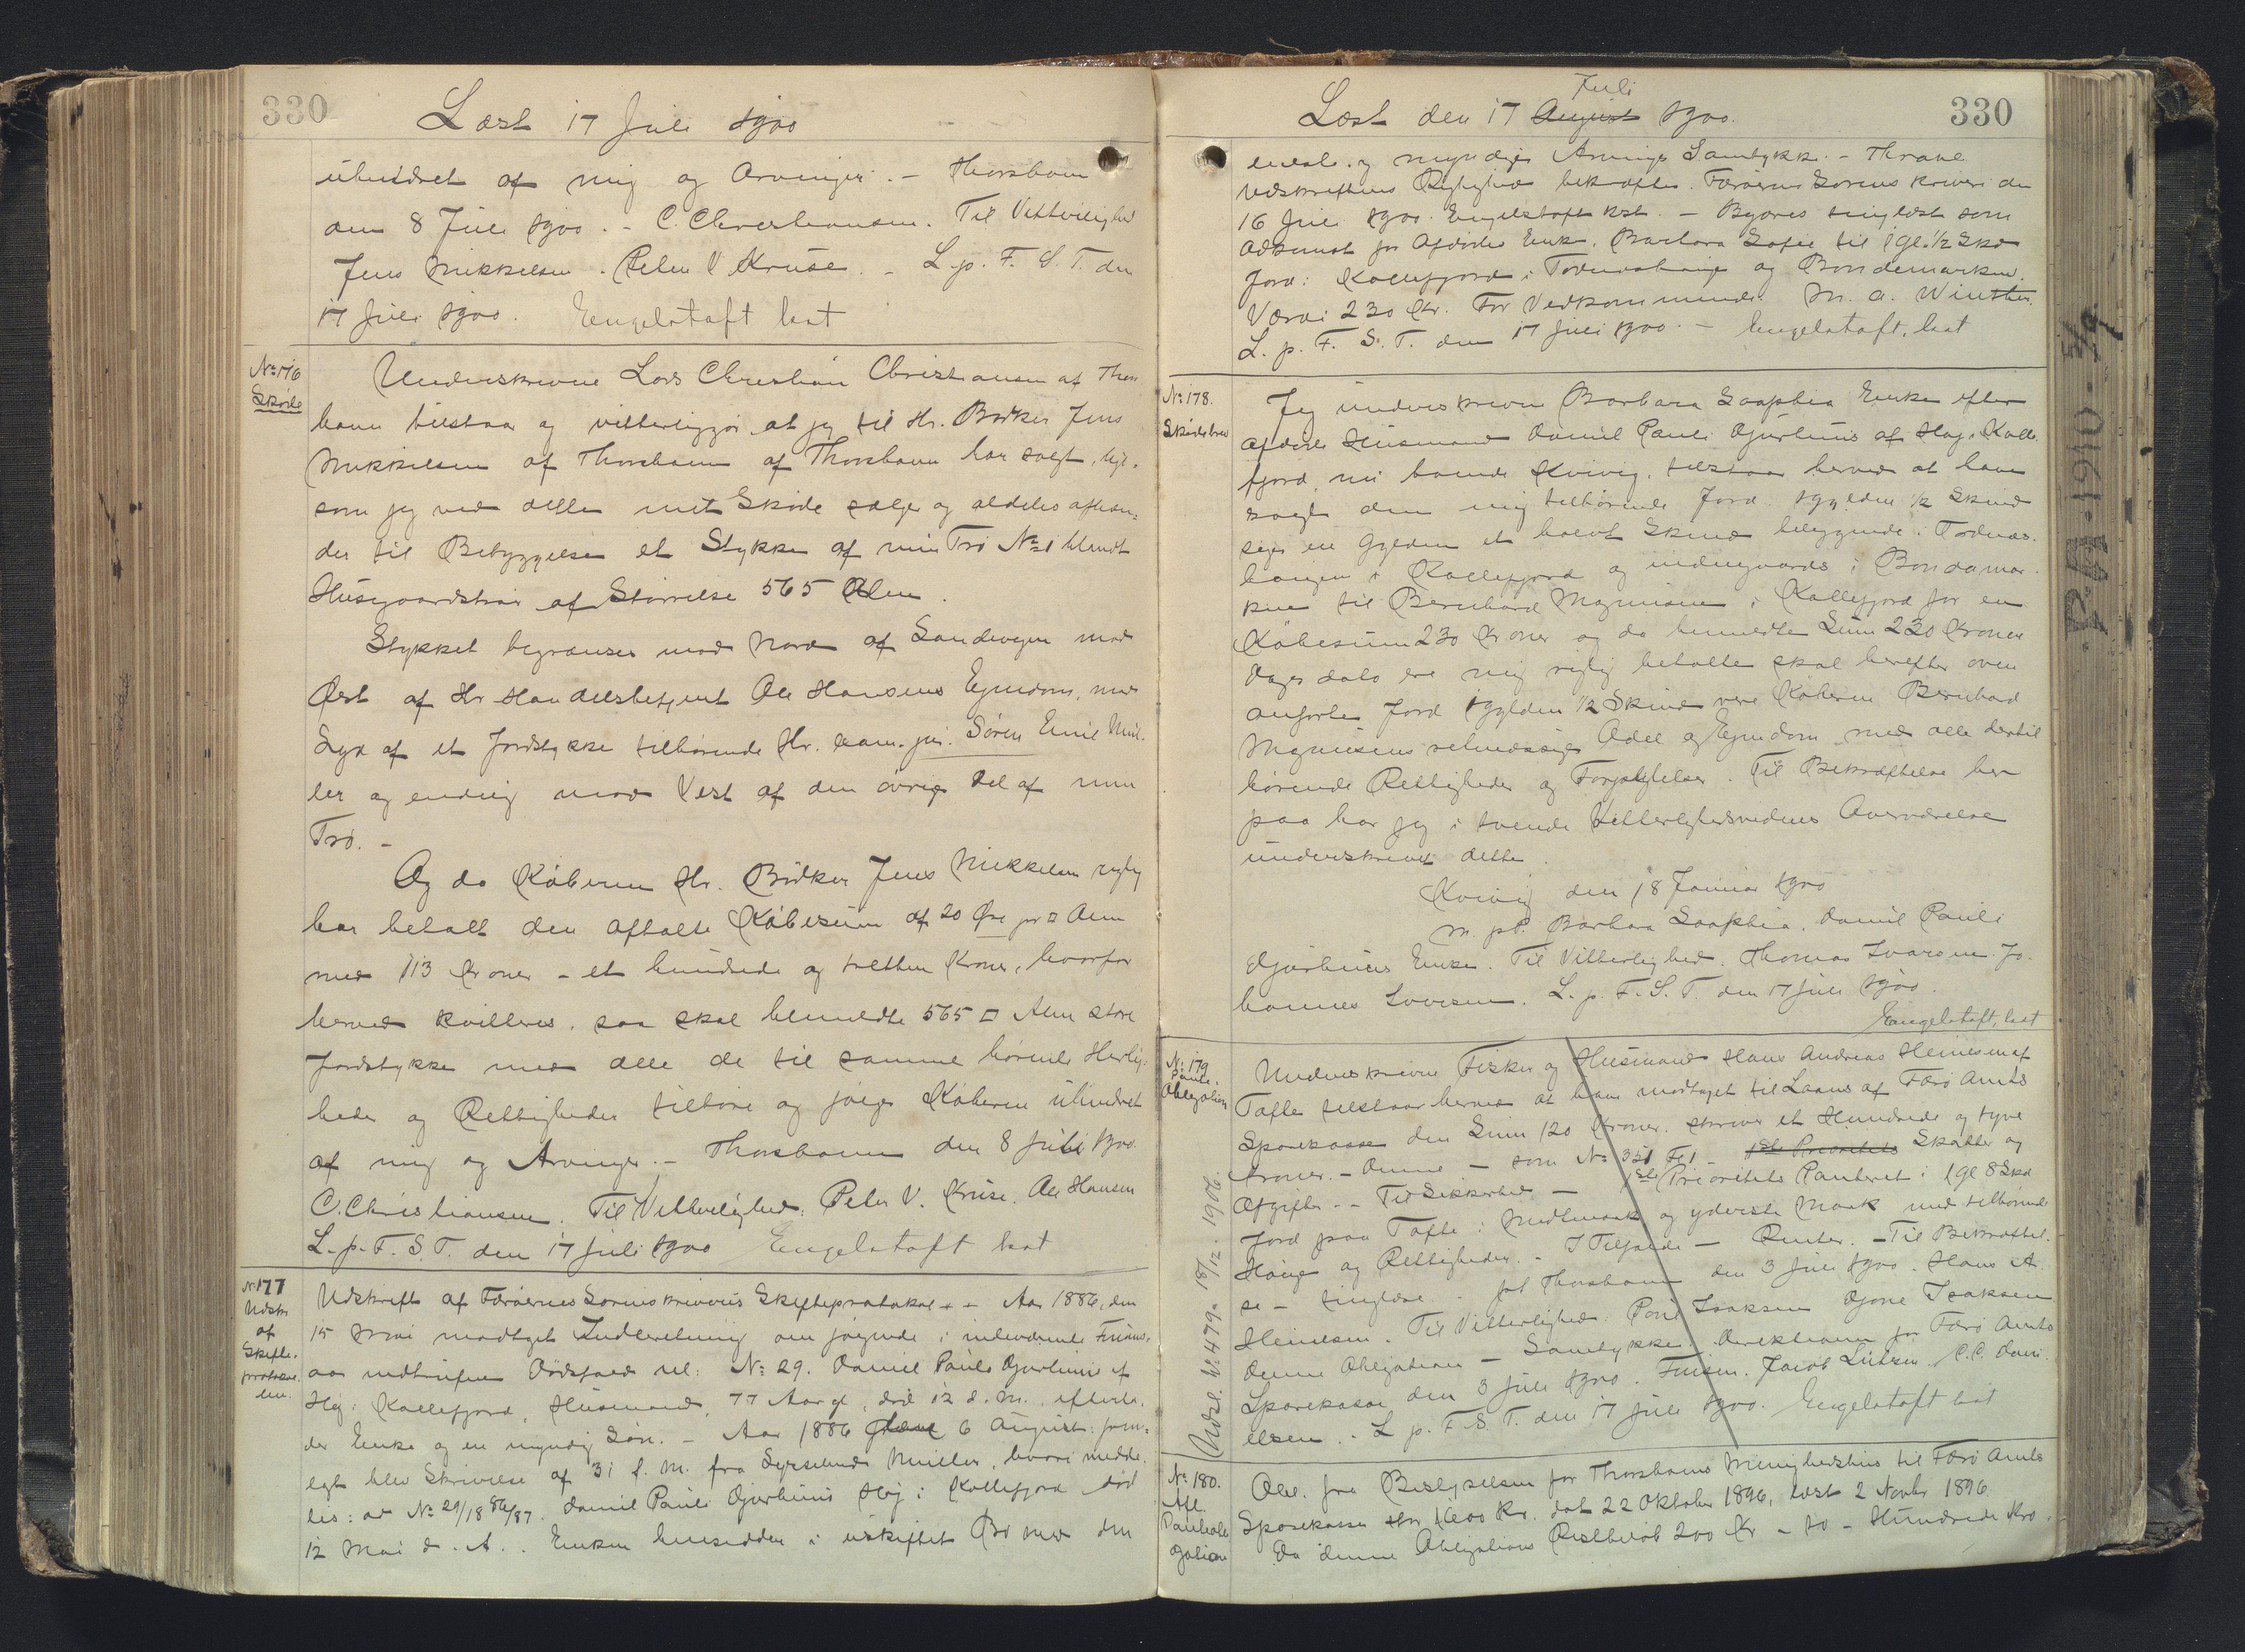 330
Læst 17 Juli 1900
uhindret af mig og Arvinger. - Thorshavn
den 8 Juli 1900. - C. Christiansen. Til Vitterlighed
Jens Mikkelsen. Peter V Kruse. - L. p. F. S. T. den
17 Juli 1900. Engelstoft kst
No 176
Skøde
Underskrevne Lars Christian Christiansen af Thors
havn tilstaar og vitterliggjør at jeg til Hr. Bødker Jens
Mikkelsen af Thorshavn af Thorshavn har solgt, lige-
som jeg ved dette mit Skøde sælger og aldeles afhæn-
der til Bebyggelse et Stykke af min Trø No 1 blandt
Husgaardstrøer af Størrelse 565 □ Alen.
Stykket begrænses mod Nord af Landevejen mod
Øst af Hr Handelsbetjent Ole Hansens Ejendom, mod
Syd af et Jordstykke tilhørende Hr. exam. jur. Søren Emil Mül-
ler og endelig mod Vest af den øvrige Del af min
Trø. -
Og da Køberen Hr. Bødker Jens Mikkelsen rigtig
har betalt den aftalte Købesum af 20 Øre pr □ Alen
med 113 Kroner - et hundrede og tretten Kroner, hvorfor
herved kvitteres, saa skal bemeldte 565 □ Alen store
Jordstykke med alle de til samme hørende Herlig-
heder og Rettigheder tilhøre og følge Køberen uhindret
af mig og Arvinger. - Thorshavn den 8 Juli 1900.
C. Christiansen. Til Vitterlighed: Peter V. Kruse. Ole Hansen
L. p. F. S. T. den 17 Juli 1900 Engelstoft kst
No 177
Udskr
af
Skifte-
protokol-
len.
Udskrift af Færøernes Sorenskriveris Skifteprotokol ++ Aar 1886, den
15 Mai modtaget Indberetning om følgende i indeværende Finans-
aar indtrufne Dødsfald nl: No 29. Daniel Pauli Djurhuus af
Høj i Kollefjord, Husmand, 77 Aar gl, død 12 d. M. efterla-
der Enke og en myndig Søn. - Aar 1886 6 August: frem-
lagt blev Skrivelse af 31 f. M. fra Sysselmand Müller, hvori medde-
les: ad No 29/18 86/87. Daniel Pauli Djurhuus Høj i Kollefjord død
12 Mai d. A. . Enken hensidder i uskiftet Bo med den
Juli
Læst den 17 August 1900.
330
eneste og myndige Arvings Samtykke. - Thrane
Udskriftens Rigtighed bekræftes. Færøernes Sorenskriveri den
16 Juli 1900. Engelstoft kst. - Begæres tinglæst som
Adkomst for Afdødes Enke, Barbara Sofie til 1 gl. 1/2 Skd
Jord i Kollefjord i Todneshauge og Bondemarken.
Værdi 230 Kr. For Vedkommende M. A. Winther.
L. p. F. S. T. den 17 Juli 1900. - Engelstoft, kst
No 178.
Skødebrev
Jeg underskrevne Barbara Saaphia Enke efter
afdøde Husmand Daniel Pauli Djurhuus af Høj i Kolle-
fjord, nu boende Kvivig, tilstaar herved at have
solgt den mig tilhørende Jord 1 gylden 1/2 Skind
siger en Gylden et halvt Skind beliggende i Todnes-
haugen i Kollefjord og indengaards i Bondamar-
ken til Bernhard Magnussen i Kollefjord for en
Købesum 230 Kroner og da bemeldte Sum 230 Kroner
Dags dato ere mig rigtig betalte skal herefter oven
anførte Jord 1 gylden 1/2 Skind være Køberen Bernhad
Magnusens retmæssige Odel og Ejendom med alle dertil
hørende Rettigheder og Forpligtelser. Til Bekræftelse her-
paa har jeg i tvende Vitterlighedsvidners Overværelse
underskrevet dette.
Kvivig den 18 Januar 1900
m. p. P. Barbara Saaphia. Daniel Pauli
Djurhuus Enke. Til Vitterlighed. Thomas Ivarsen. Jo-
hannes Iversen. L. p. F. S. T. den 17 Juli 1900.
Engelstoft, kst
No 179
Pante-
Obligation
Underskrevne Fisker og Husmand Hans Andreas Heinesen af
Tofte tilstaar herved at have modtaget til Laans af Færø Amts
Sparekasse den Sum 120 Kroner. skriver et Hundrede og tyve
Kroner. - Denne - som No 351 F1 - 1ste Prioritets Skatter og
Afgifter. - Til Sikkerhed - 1ste Prioritets Panteret i 1 gl 8 Skd
Jord paa Tofte i Midtmaak og yderste Maak med tilhørende
Hauge og Rettigheder. - I Tilfælde - Renter. - Til Bekræftel-
se - tinglæse. - pt Thorshavn den 3 Juli 1900. Hans A.
Heinesen. Til Vitterlighed: Poul Isaksen Djone Isaksen
Denne Obligation - Samtykke. Direktionen for Færø Amts
Sparekasse den 3 Juli 1900. Finsen. Jacob Lützen C. C. Dani-
elsen. - L p. F. S. T. den 17 Juli 1900. Engelstoft kst
Udsl. N: 479. 18/12. 1906.
No 180.
Afl.
Panteobli-
gation
Obl. fra Bestyrelsen for Thorshavns Menighedshus til Færø Amts
Sparekasse stor 1600 Kr. dat 22 Oktober 1896, læst 2 Novbr 1896.
Da denne Obligations Restbeløb 200 Kr - to - Hundrede Kro-